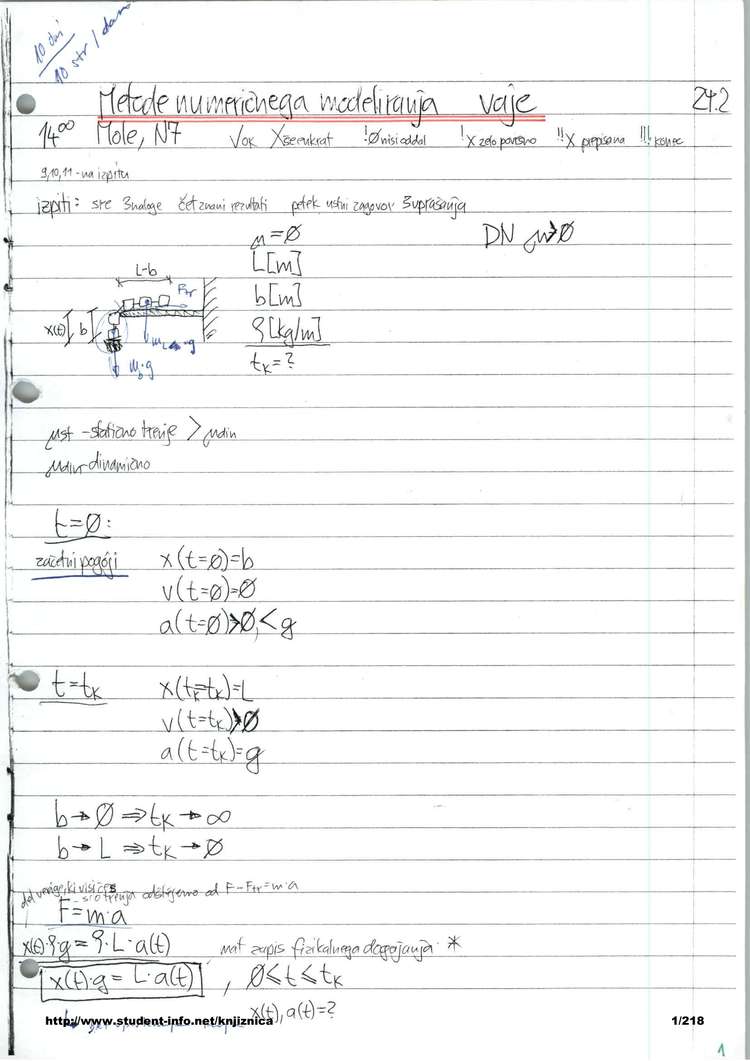 10 dni
10 str / dan
Metode numeričnega modeliranja vaje 24.2
14⁰⁰ Mole, N7 √ok X še enkrat !Ø nisi oddal !X zelo površno !!X prepisana !!! konec
9,10,11 - na izpitu
izpiti: sre 3 naloge čet znani rezultati petek ustni zagovor 3 vprašanja
μ=Ø DN μ>Ø
L[m]
L-b
b[m]
Ftr
x(t) b
ρ[kg/m]
mb·g
tK=?
μst - statično trenje > μdin
μdin - dinamično
t=Ø:
začetni pogoji x(t=Ø)=b
v(t=Ø)=Ø
a(t=Ø)>Ø,<g
t=tK x(t=tK)=L
v(t=tK)>Ø
a(t=tK)=g
b→Ø ⇒ tK→∞
b→L ⇒ tK→Ø
del verige, ki visi čez
odštejemo od F-Ftr=m·a
F=m·a
x(t)·ρ·g=ρ·L·a(t) mat zapis fizikalnega dogajanja *
x(t)·g=L·a(t) , Ø≤t≤tK
x(t), a(t)=?
http://www.student-info.net/knjiznica 1/218
1